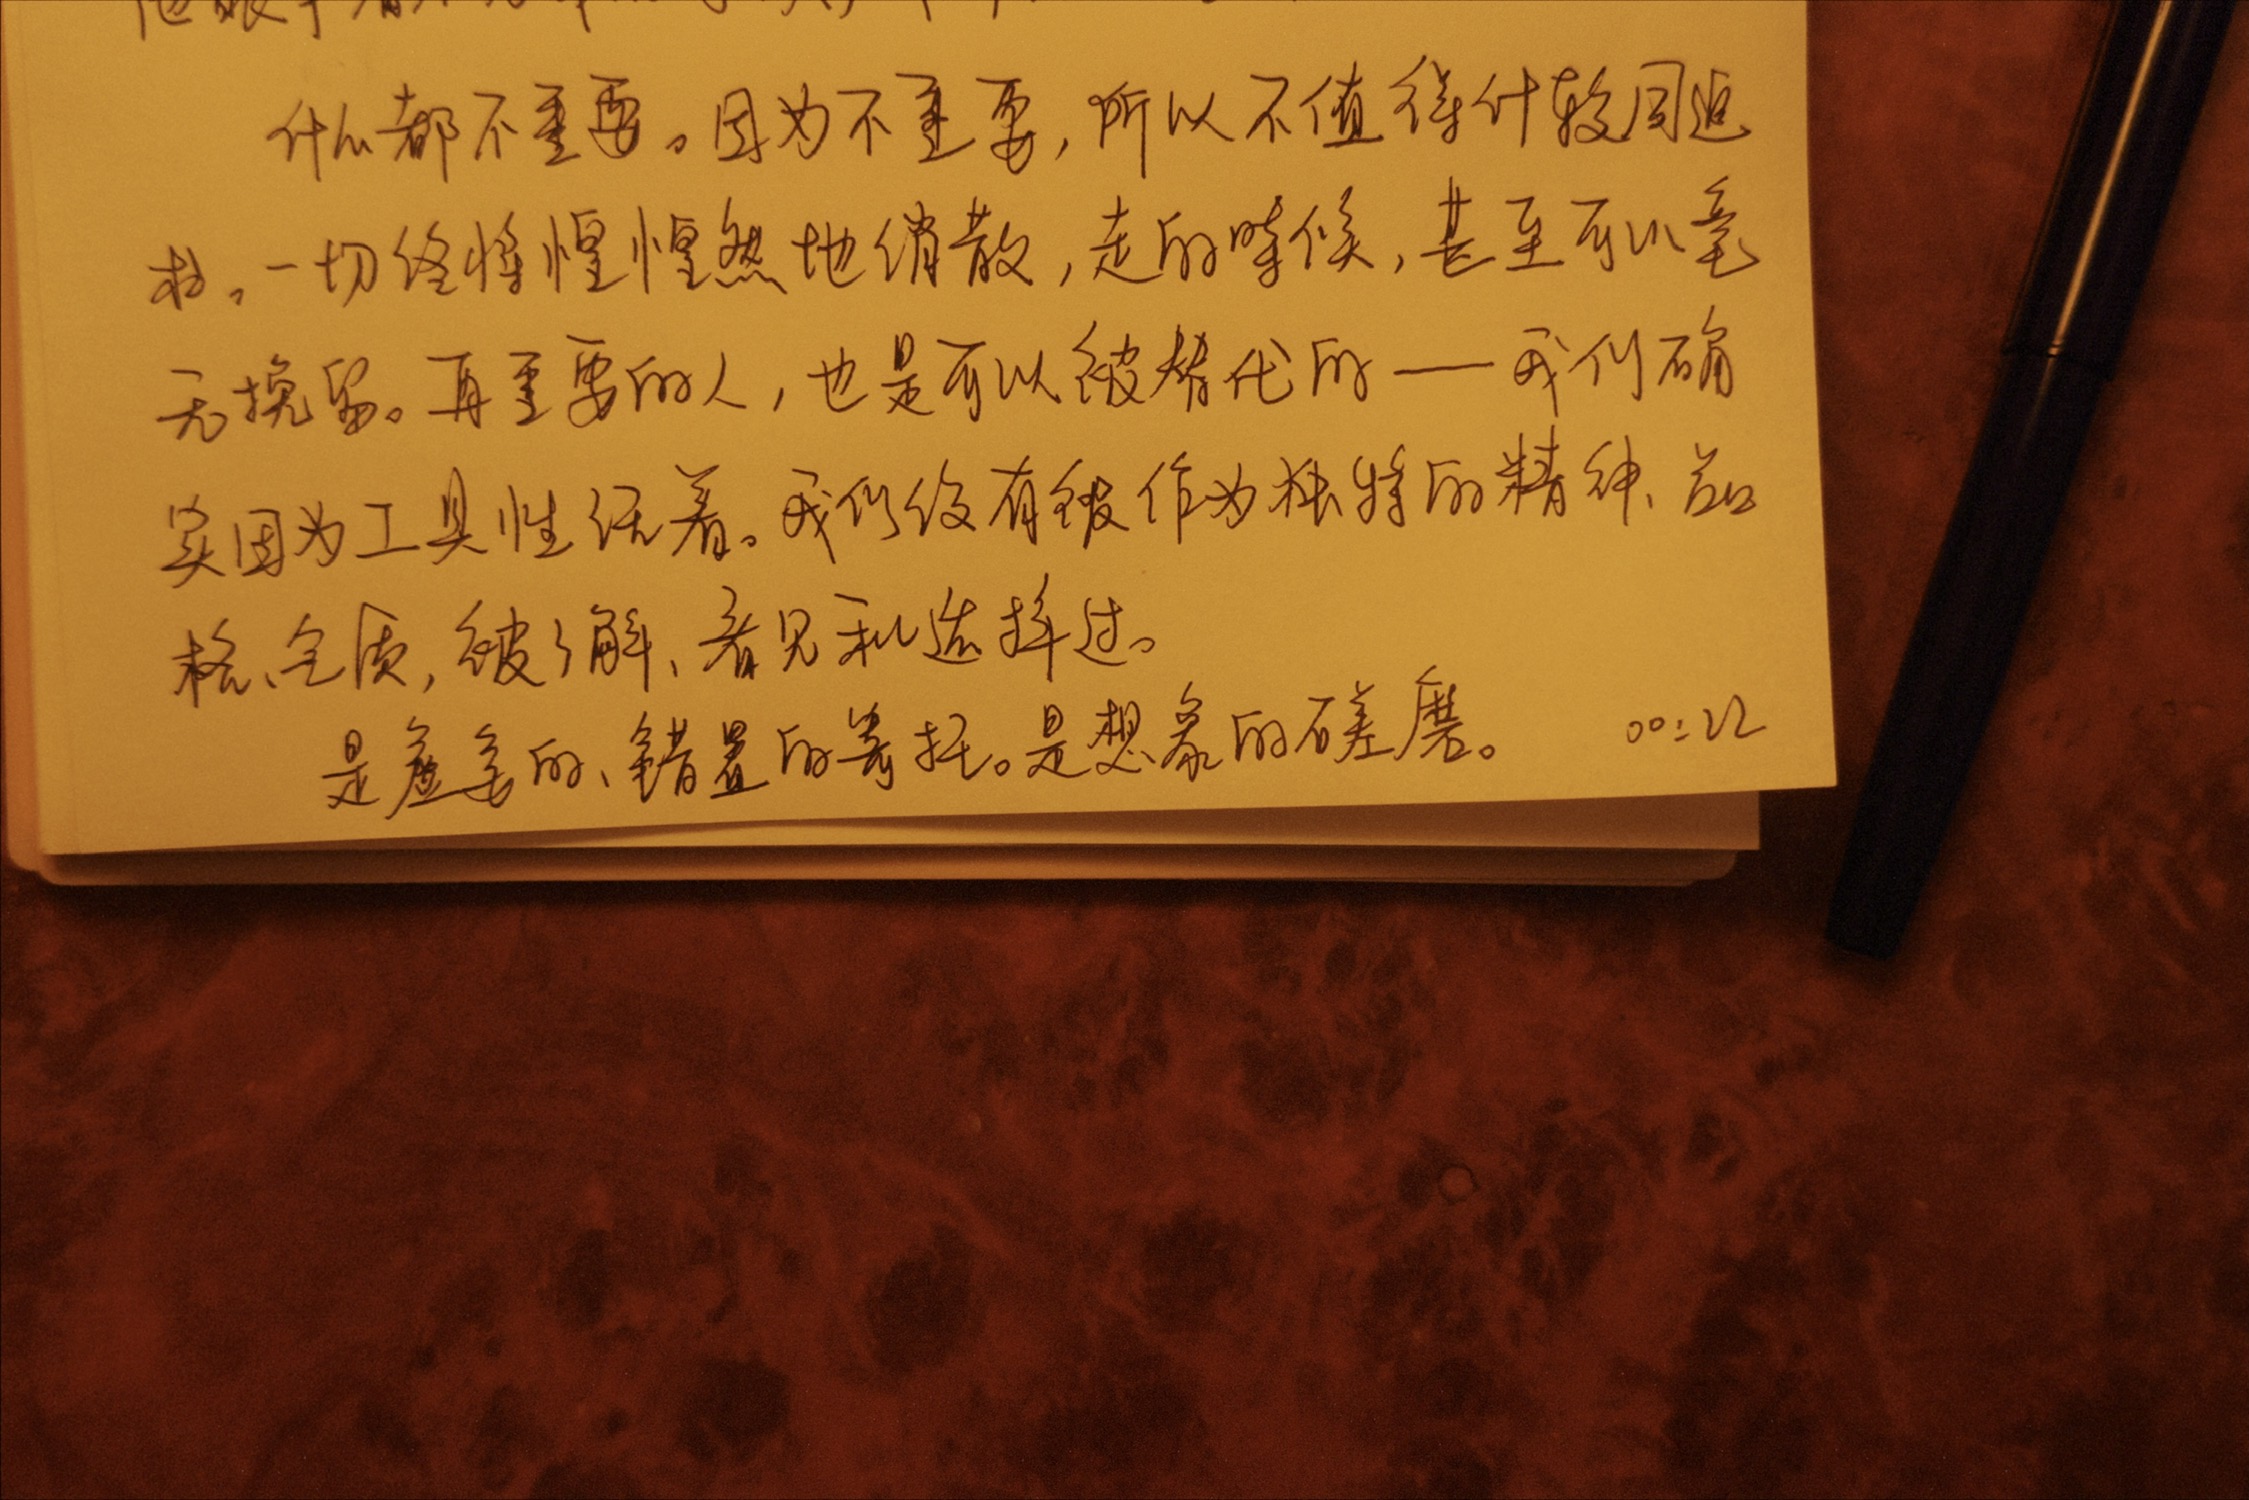 什么都不重要。因为不重要，所以不值得计较同追
究。一切终将惶惶然地消散，走的时候，甚至可以毫
无挽留。再重要的人，也是可以被替代的——我们确
实因为工具性活着。我们没有被作为独特的精神、品
格、气质，被了解、看见和选择过。
是虚妄的、错置的寄托。是想象的磋磨。 00:22